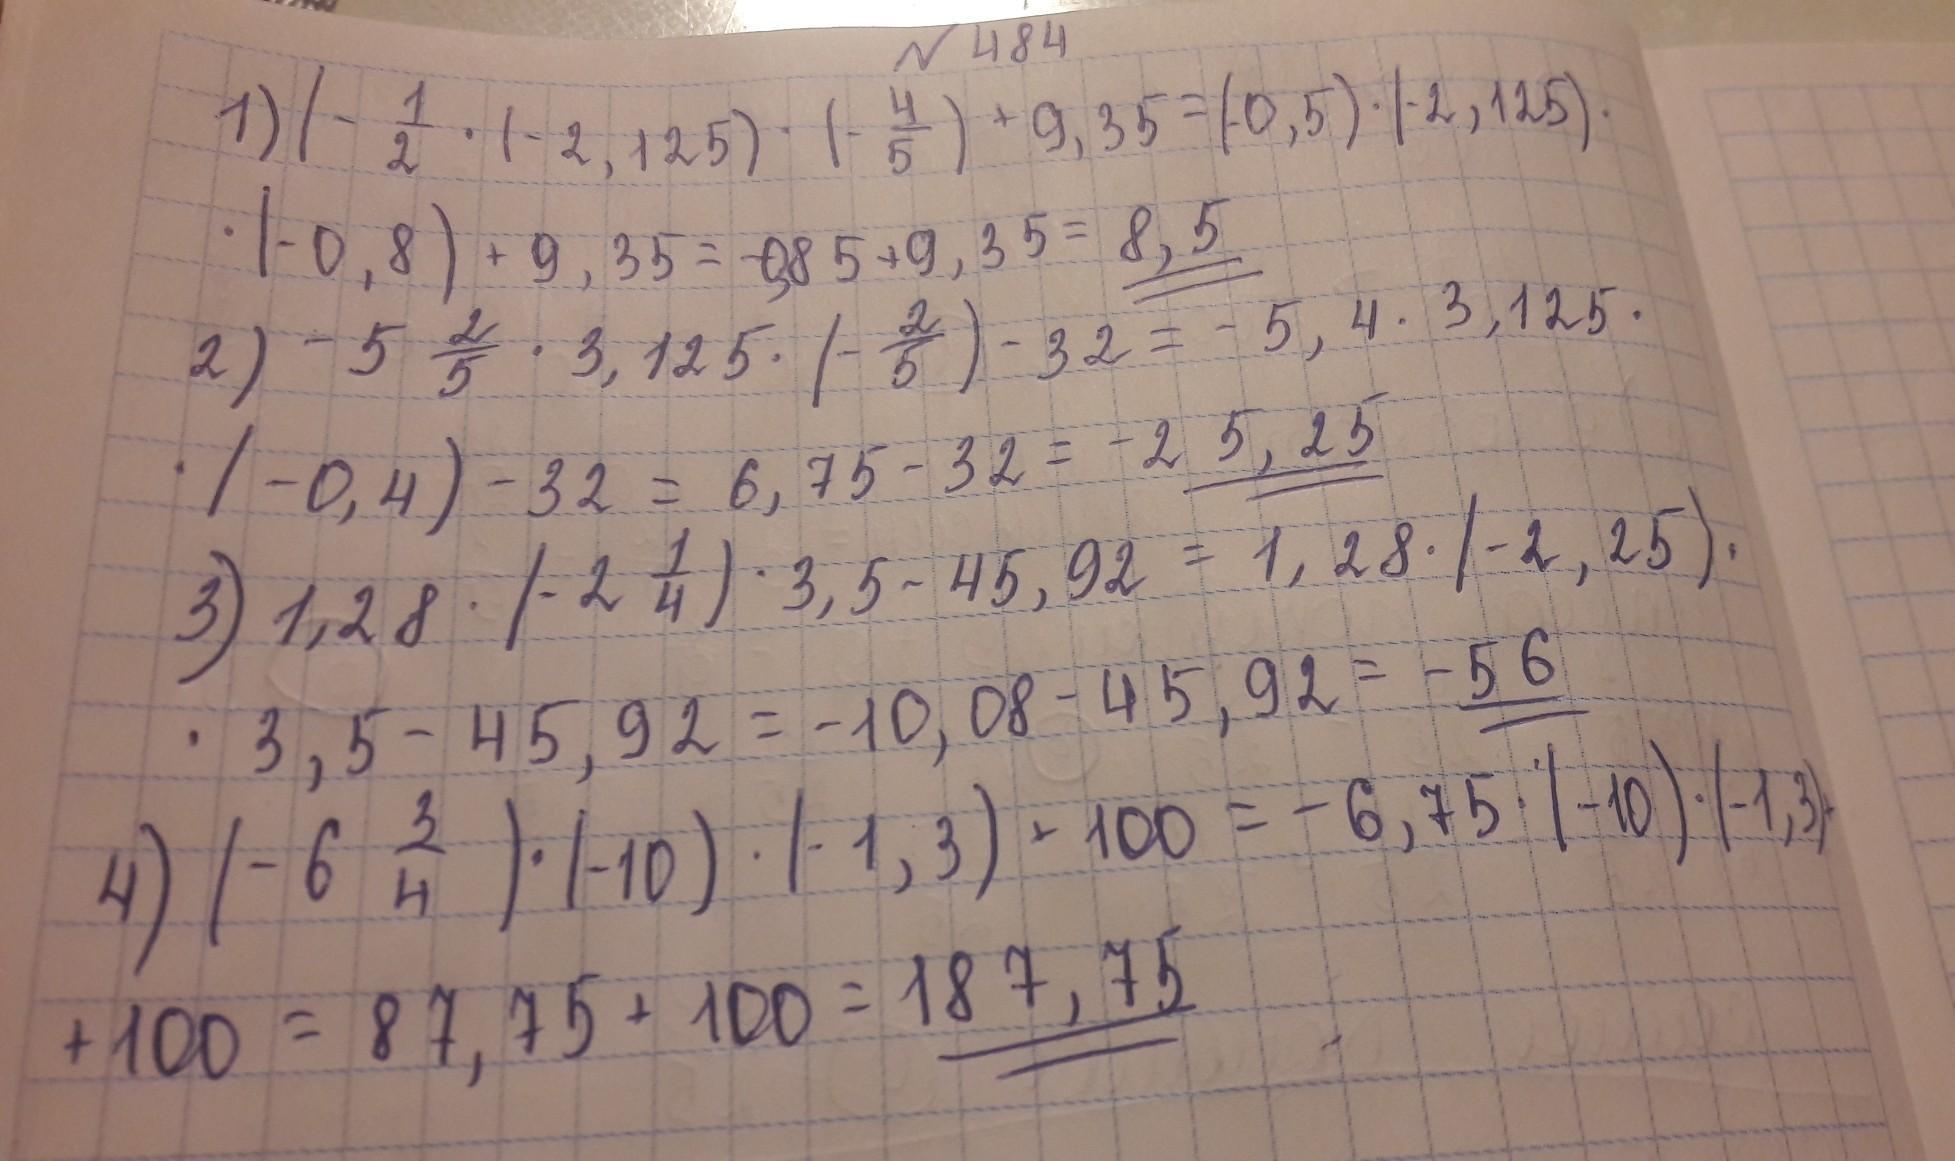 № 484
1) (- 1/2 · (-2,125) · (- 4/5) + 9,35 = (-0,5) · (-2,125) ·
· (-0,8) + 9,35 = -0,85 + 9,35 = 8,5
2) -5 2/5 · 3,125 · (- 2/5) - 32 = -5,4 · 3,125 ·
· (-0,4) - 32 = 6,75 - 32 = -25,25
3) 1,28 · (-2 1/4) · 3,5 - 45,92 = 1,28 · (-2,25) ·
· 3,5 - 45,92 = -10,08 - 45,92 = -56
4) (-6 3/4) · (-10) · (-1,3) + 100 = -6,75 · (-10) · (-1,3) +
+100 = 87,75 + 100 = 187,75